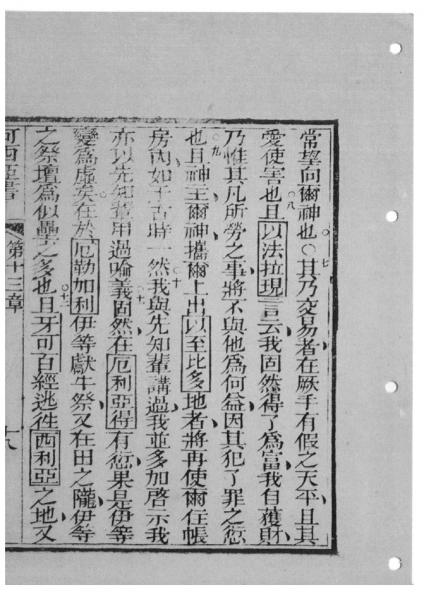 常望向爾神也○其乃交易者在厥手有假之天平且其
七
愛使害也且以法拉現言云我固然得了為富我自獲財
八
乃惟其凡所勞之事將不與他為何益因其犯了罪之愆
九
也且神主爾神攜爾上出以至比多地者將再使爾住帳
房內如于古時一然我與先知輩講過我並多加啓示我
十
亦以先知輩用過喻義固然在厄利亞得有愆果是伊等
十一
變為虛矣在於厄勒加利伊等獻牛祭又在田之隴伊等
之祭壇為似壘之多也且牙可百經逃徃西利亞之地又
十二
何西亞書 第十三章 十八